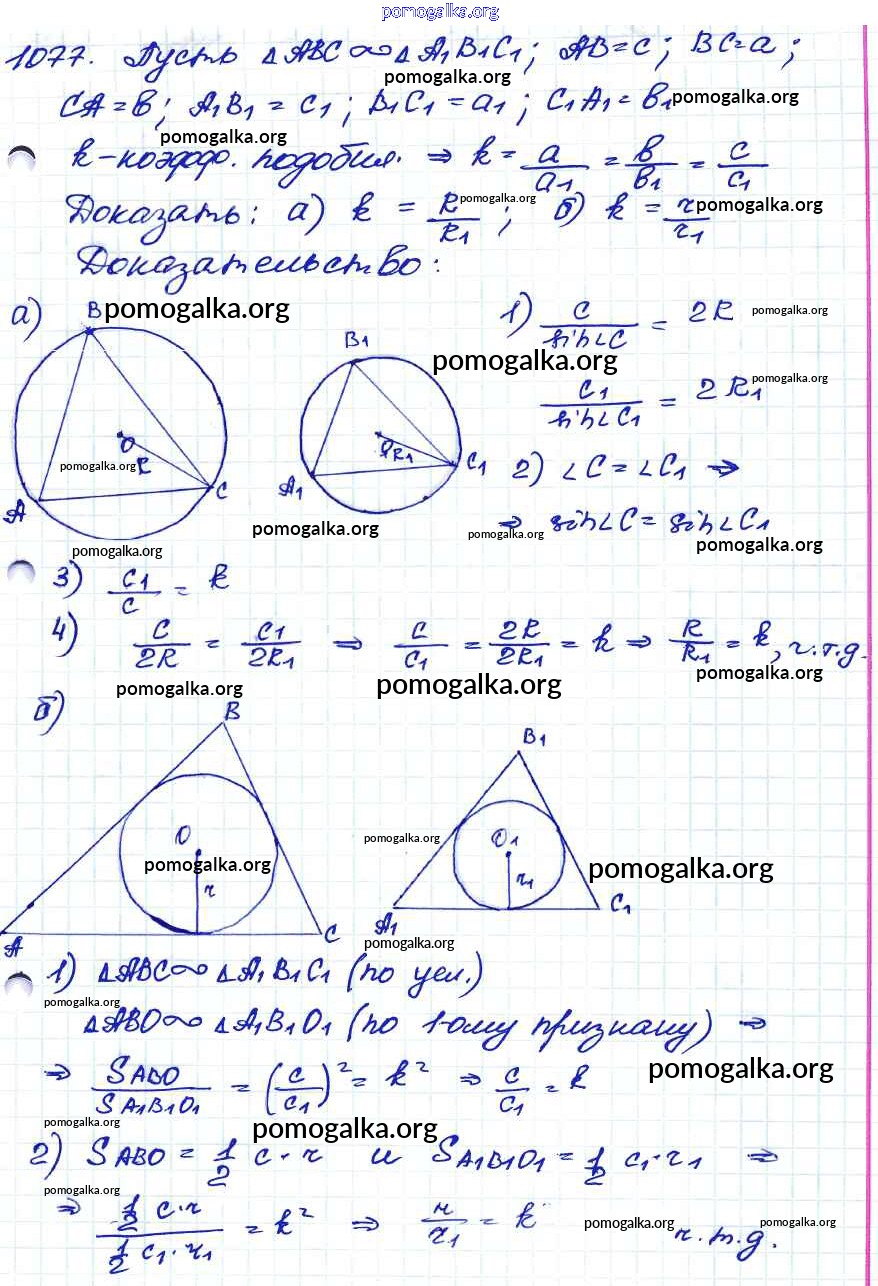 pomogalka.org
1077. Пусть △ABC ∾ △A₁B₁C₁; AB=c; BC=a;
pomogalka.org
CA=в; A₁B₁=c₁; B₁C₁=a₁; C₁A₁=в₁ pomogalka.org
pomogalka.org
k-коэфф. подобия. ⇒ k = a/a₁ = в/в₁ = c/c₁
Доказать: а) k = R/R₁ pomogalka.org; б) k = r/r₁ pomogalka.org
Доказательство:
а) B pomogalka.org 1) c/sin∠C = 2R pomogalka.org
B₁ pomogalka.org
c₁/sin∠C₁ = 2R₁ pomogalka.org
O R pomogalka.org C A
O R₁ C₁ A₁ 2) ∠C=∠C₁ ⇒
⇒ sin∠C = sin∠C₁
pomogalka.org pomogalka.org pomogalka.org
pomogalka.org
3) c₁/c = k
4) c/2R = c₁/2R₁ ⇒ c/c₁ = 2R/2R₁ = k ⇒ R/R₁ = k, ч.т.д.
pomogalka.org pomogalka.org pomogalka.org
б) B B₁
O pomogalka.org r pomogalka.org O₁ r₁ pomogalka.org
A C A₁ C₁
pomogalka.org
1) △ABC ∾ △A₁B₁C₁ (по усл.)
pomogalka.org
△ABO ∾ △A₁B₁O₁ (по 1-ому признаку) ⇒
⇒ SABO/SA₁B₁O₁ = (c/c₁)² = k² ⇒ c/c₁ = k pomogalka.org
pomogalka.org pomogalka.org
2) SABO = 1/2 c·r и SA₁B₁O₁ = 1/2 c₁·r₁ ⇒
pomogalka.org
⇒ 1/2 c·r / 1/2 c₁·r₁ = k² ⇒ r/r₁ = k pomogalka.org ч.т.д. pomogalka.org